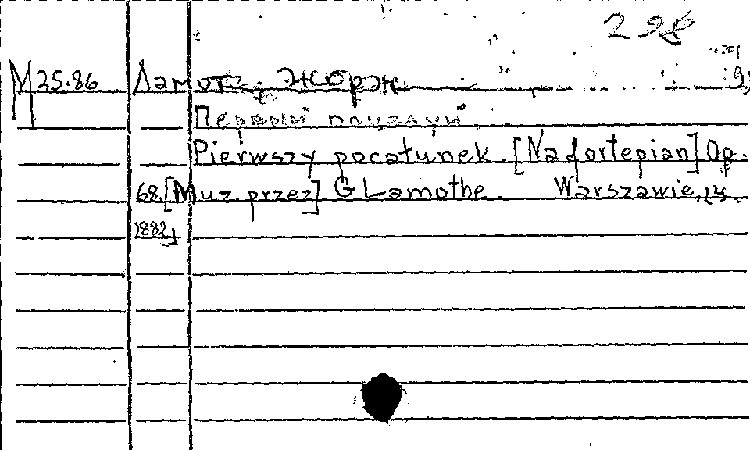 298
М 25.86 Ламотт, Жорж
Первый поцелуй
Pierwszy pocałunek. [Na fortepian] Op.
68. [Muz przez] G Lamothe. Warszawie,
1882]